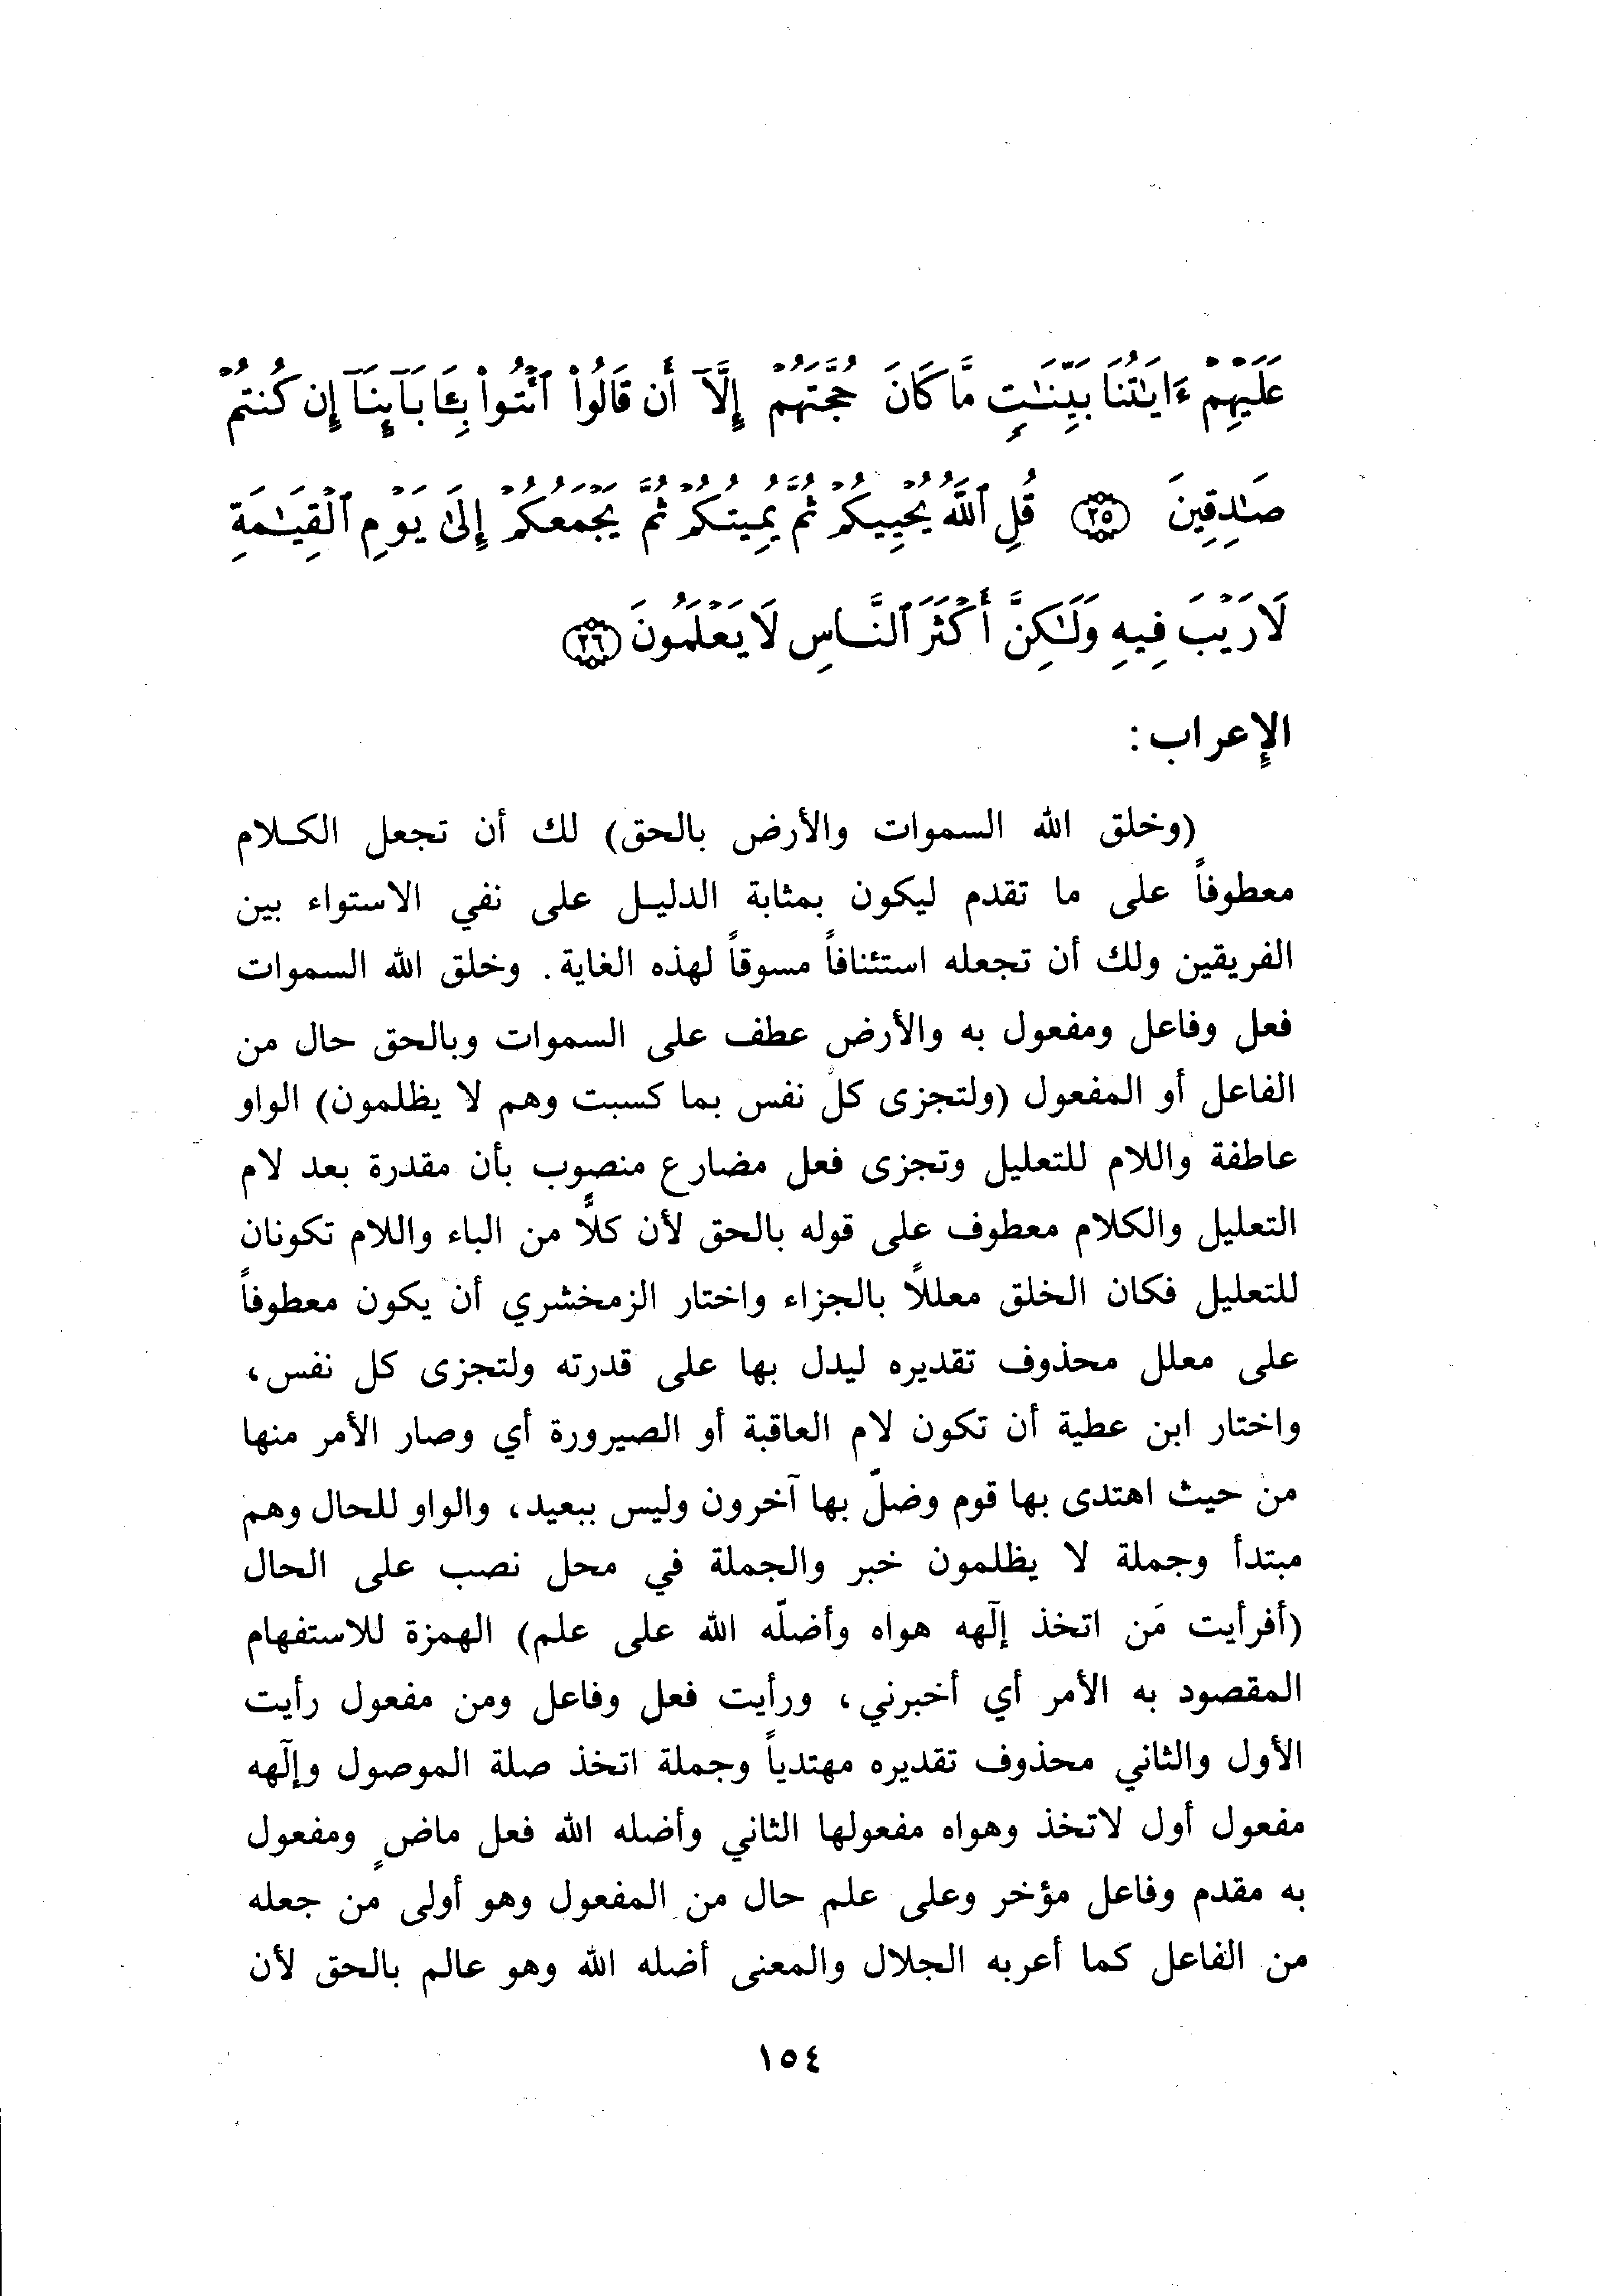 عَلَيْهِمْ ءَايَٰتُنَا بَيِّنَٰتٍ مَّا كَانَ حُجَّتَهُمْ إِلَّآ أَن قَالُوا۟ ٱئْتُوا۟ بِـَٔابَآئِنَآ إِن كُنتُمْ
صَٰدِقِينَ ٢٥ قُلِ ٱللَّهُ يُحْيِيكُمْ ثُمَّ يُمِيتُكُمْ ثُمَّ يَجْمَعُكُمْ إِلَىٰ يَوْمِ ٱلْقِيَٰمَةِ
لَا رَيْبَ فِيهِ وَلَٰكِنَّ أَكْثَرَ ٱلنَّاسِ لَا يَعْلَمُونَ ٢٦
الإعراب :
(وخلق الله السموات والأرض بالحق) لك أن تجعل الكلام
معطوفاً على ما تقدم ليكون بمثابة الدليل على نفي الاستواء بين
الفريقين ولك أن تجعله استئنافاً مسوقاً لهذه الغاية . وخلق الله السموات
فعل وفاعل ومفعول به والأرض عطف على السموات وبالحق حال من
الفاعل أو المفعول (ولتجزى كل نفس بما كسبت وهم لا يظلمون) الواو
عاطفة واللام للتعليل وتجزى فعل مضارع منصوب بأن مقدرة بعد لام
التعليل والكلام معطوف على قوله بالحق لأن كلًّا من الباء واللام تكونان
للتعليل فكان الخلق معللاً بالجزاء واختار الزمخشري أن يكون معطوفاً
على معلل محذوف تقديره ليدل بها على قدرته ولتجزى كل نفس ،
واختار ابن عطية أن تكون لام العاقبة أو الصيرورة أي وصار الأمر منها
من حيث اهتدى بها قوم وضلّ بها آخرون وليس ببعيد ، والواو للحال وهم
مبتدأ وجملة لا يظلمون خبر والجملة في محل نصب على الحال
(أفرأيت مَن اتخذ إلٓهه هواه وأضلّه الله على علم) الهمزة للاستفهام
المقصود به الأمر أي أخبرني ، ورأيت فعل وفاعل ومن مفعول رأيت
الأول والثاني محذوف تقديره مهتدياً وجملة اتخذ صلة الموصول وإلٓهه
مفعول أول لاتخذ وهواه مفعولها الثاني وأضله الله فعل ماضٍ ومفعول
به مقدم وفاعل مؤخر وعلى علم حال من المفعول وهو أولى من جعله
من الفاعل كما أعربه الجلال والمعنى أضله الله وهو عالم بالحق لأن
١٥٤